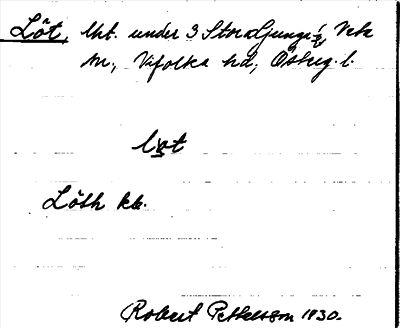 Löt, lht. under 3 Stora Ljunga i Veta
sn, Vifolka hd, Österg. l.
löt
Löth kb.
Robert Pettersson 1930.